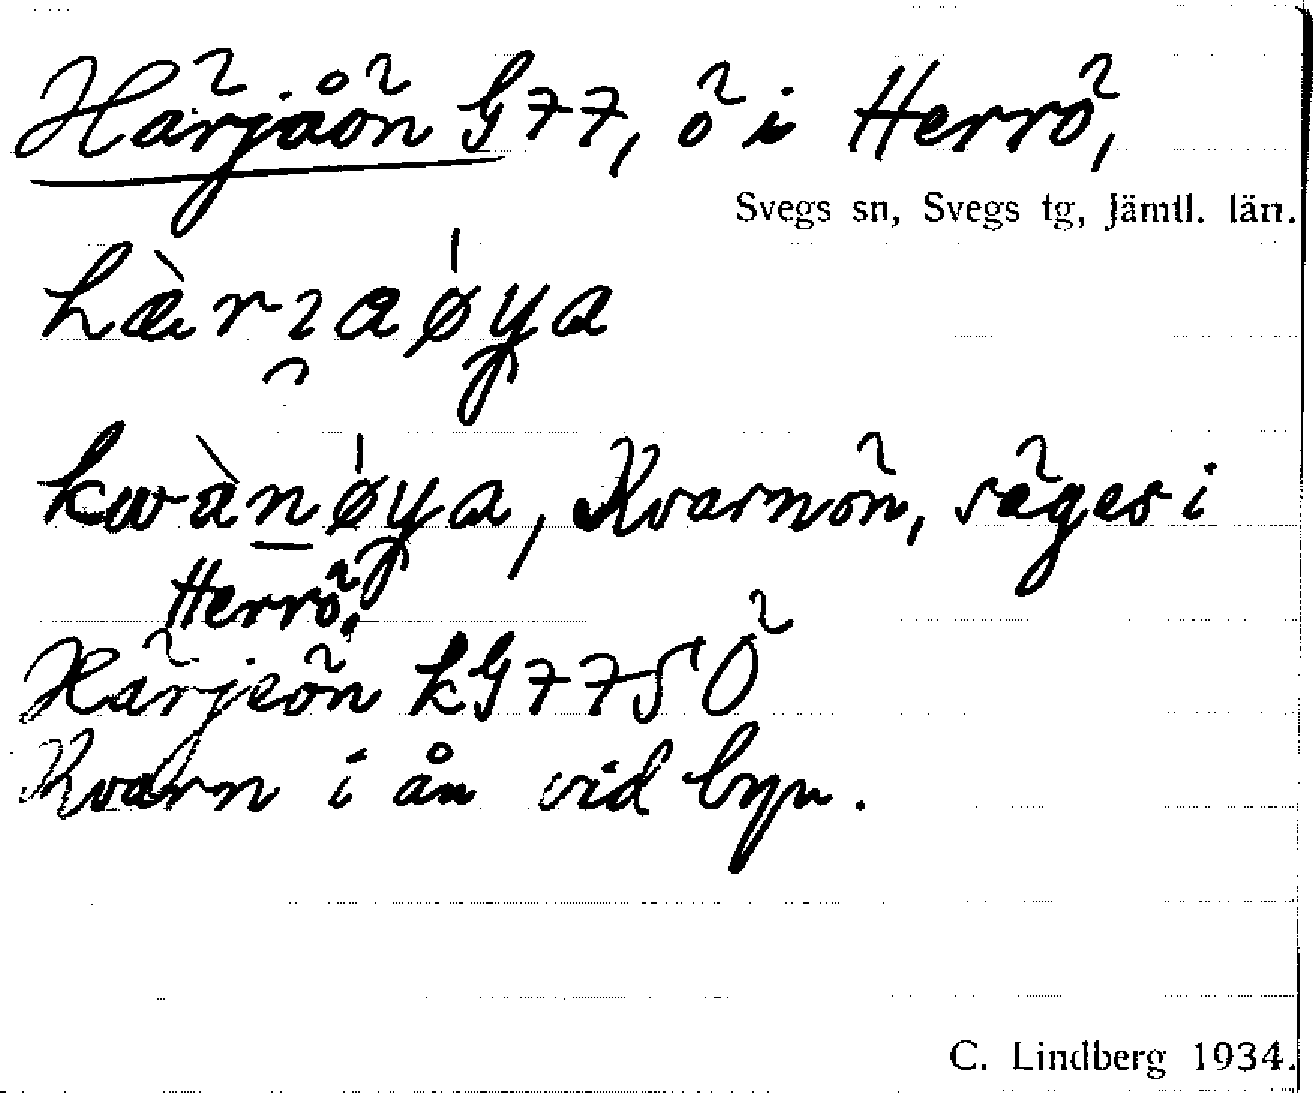 Härjåön G77, ö i Herrö,
Svegs sn, Svegs tg, Jämtl. län.
kwànøya, Kvarnön, säges i
Herrö.
Härjeön kG77SÖ
Kvarn i ån vid byn.
C. Lindberg 1934.